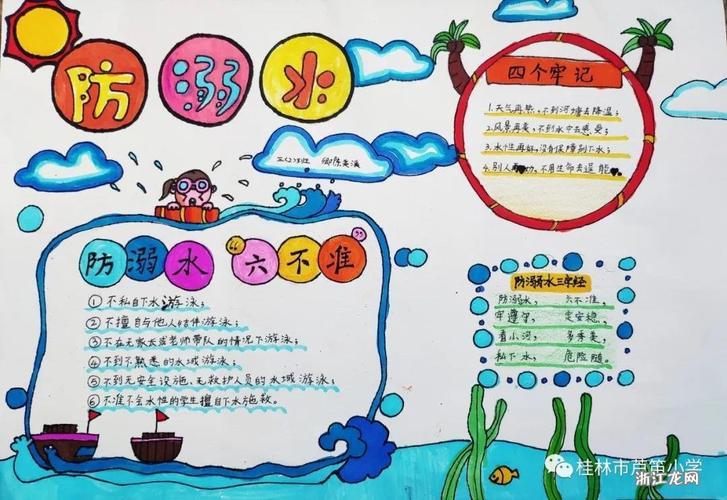 防溺水
四个牢记
1.天气再热，不到河塘去降温；
2.风景再美，不到水中去感受；
3.水性再好，没有保障别下水；
4.别人再劝，不用生命去逞能
五(2)班
防溺水“六不准”
①不私自下水游泳；
②不擅自与他人结伴游泳；
③不在无家长或老师带队的情况下游泳；
④不到不熟悉的水域游泳；
⑤不到无安全设施、无救护人员的水域游泳；
⑥不准不会水性的学生擅自下水施救。
防溺水三字经
防溺水， 六不准，
牢遵守， 定安稳，
看小河， 多秀美，
私下水， 危险随。
桂林市芦笛小学
浙江龙网